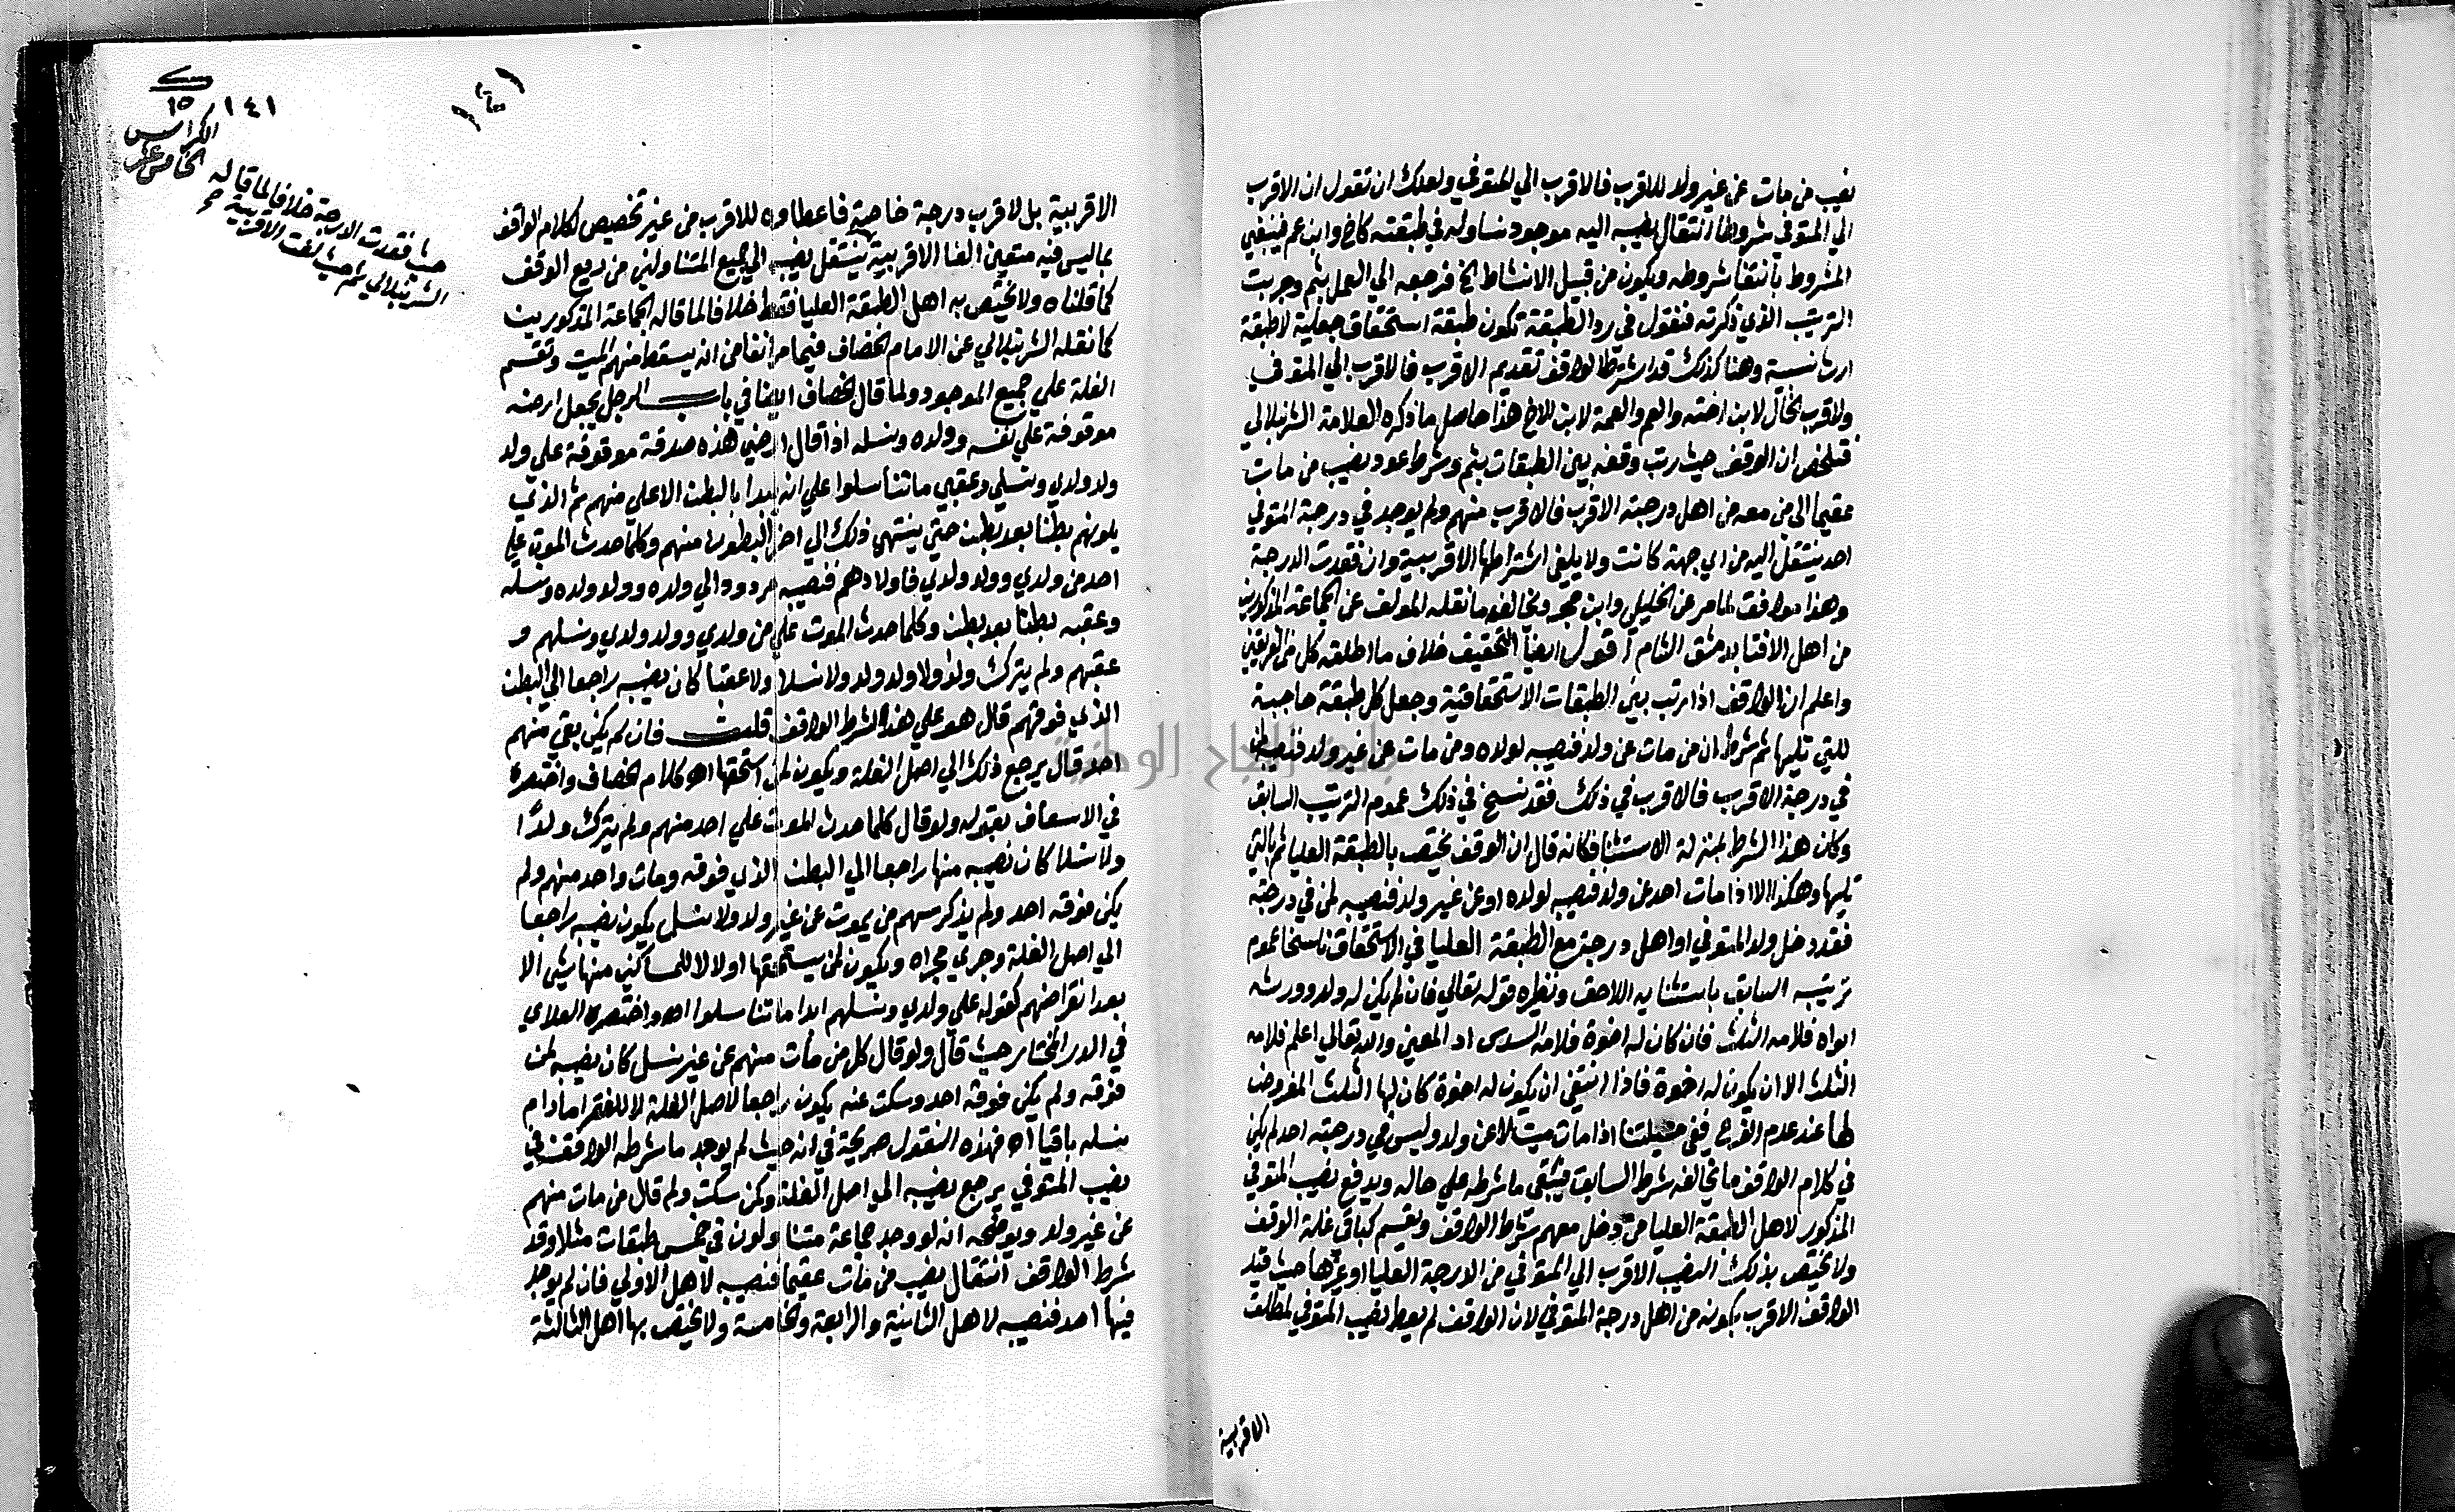 نصيب من مات عن غير ولد للاقرب فالاقرب الي المتوفي ولعلك ان تقول ان الاقرب
الي المتوفي شروط انتقال نصيبه اليه موجود بتساوله في طبقته كاخ وابن عم فينبغي
المشروط بانتفا شروطه ويكون من قبيل الانشاط الخ فرجعه الي العمل بثم وجريت
الترتيب الذي ذكرته فنقول في رد الطبقة تكون طبقة استحقاق جعلية لا طبقة
ارث نسبية وهنا كذلك قد اشترط الواقف تقديم الاقرب فالاقرب الي المتوفي
ولا قرب لخال لابن اخته والعم والعمة لابن الاخ هذا حاصل ما ذكره العلامة الشرنبلالي
فتلخص ان الوقف حيث رتب وقفه بين الطبقات بثم وشرط عود نصيب من مات
عقيما الي من معه من اهل درجته الاقرب فالاقرب منهم ولم يوجد في درجة المتوفي
احد ينتقل اليه من اي جهة كانت ولا يلغي اشتراطها الاقربية وان فقدت الدرجة
وهذا موافق لما مر عن الخليلي وابن حجر ويخالفه ما نقله المؤلف عن الجماعة المذكورين
من اهل الافتا بدمشق الشام اقول ايضا التحقيق خلاف ما اطلقه كل من الفريقين
واعلم ان الواقف اذا رتب بين الطبقات الاستحقاقية وجعل كل طبقة حاجبة
للتي تليها ثم شرط ان من مات عن ولد فنصيبه لولده ومن مات عن غير ولد فنصيبه لمن
في درجته الاقرب فالاقرب في ذلك فقد نسخ في ذلك عموم الترتيب السابق
وكان هذا الشرط بمنزلة الاستثنا فكانه قال ان الوقف يختص بالطبقة العليا ثم بالتي
تليها وهكذا الا اذا مات احد عن ولد فنصيبه لولده او عن غير ولد فنصيبه لمن في درجته
فقد دخل ولد المتوفي او اهل درجته مع الطبقة العليا في الاستحقاق ناسخا عموم
ترتيبه السابق باستثنايه اللاحق ونظيره قوله تعالي فان لم يكن له ولد وورثه
ابواه فلامه الثلث فان كان له اخوة فلامه السدس اذ المعني والله تعالي اعلم فلامه
الثلث الا ان يكون له اخوة فاذا انتفي ان يكون له اخوة كان لها الثلث المفروض
لها عند عدم الفرع ففي مسيلتنا اذا مات ميت لا عن ولد وليس في درجته احد لم يكن
في كلام الواقف ما يخالف شرط السابق فيبقي ما شرطه علي حاله ويدفع نصيب المتوفي
المذكور لاهل الطبقة العليا من دخل معهم بشرط الواقف ويقسم كباقي غلة الوقف
ولا يختص بذلك النصيب الاقرب الي المتوفي من الدرجة العليا او غيرها حيث قيد
الواقف الاقرب بكونه من اهل درجة المتوفي لان الواقف لم يعط نصيب المتوفي لمطلق
الاقربية
١٤١
١٥
الكراس
الخامس عشر
حيث فقدت الدرجة خلافا لما قاله
الشرنبلالي بثم حيث لغت الاقربية
الاقربية بل لاقرب درجة خاصية فاعطاوه للاقرب من غير تخصيص لكلام الواقف
بما ليس فيه متعين الغا الاقربية ينتقل نصيبه الي جميع المتناولين من ريع الوقف
كما قلناه ولا يختص به اهل الطبقة العليا فقط خلافا لما قاله الجماعة المذكورين
كما نقله الشرنبلالي عن الامام الخصاف فيما مر انفا من انه يسقط منهم الميت وتقسم
الغلة علي جميع الموجود ولما قال الخصاف ايضا في باب الرجل يجعل ارضه
موقوفة علي نفسه وولده ونسله اذا قال ارضي هذه صدقة موقوفة علي ولدي
ولد ولدي ونسلي وعقبي ما تناسلوا علي ان يبدا بالبطن الاعلي منهم ثم الذي
يلونهم بطنا بعد بطن حتي ينتهي ذلك الي اخر البطون منهم وكلما حدث الموت علي
احد من ولدي وولد ولدي فاولادهم فنصيبه مردود الي ولده وولد ولده ونسله
وعقبه بطنا بعد بطن وكلما حدث الموت علي من ولدي وولد ولدي ونسلهم و
عقبهم ولم يترك ولدا ولا ولد ولد ولا نسلا ولا عقبا كان نصيبه راجعا الي البطن
الذي فوقهم قال هو علي هذا الشرط الواقف قلت فان لم يكن بقي منهم
احد قال يرجع ذلك الي اصل الغلة ويكون لمن استحقها اه كلام الخصاف واختصره
في الاسعاف بقوله ولو قال كلما حدث الموت علي احد منهم ولم يترك ولدا
ولا نسلا كان نصيبه منها راجعا الي البطن الذي فوقه ومات واحد منهم ولم
يكن فوقه احد ولم يذكر سهم من يموت عن غير ولد ولا نسل يكون نصيبه راجعا
الي اصل الغلة وجري مجراه ويكون لمن يستحقها اولا لا للمساكين منها شي الا
بعد انقراضهم كقوله علي ولدي ونسلهم ابدا ما تناسلوا اه واختصره العلاي
في الدر المختار حيث قال ولو قال كل من مات منهم عن غير نسل كان نصيبه لمن
فوقه ولم يكن فوقه احد وسكت عنه يكون راجعا لاصل الغلة لا للفقرا مادام
نسله باقيا اه فهذه النقول صريحة في انه حيث لم يوجد ما شرطه الواقف في
نصيب المتوفي يرجع نصيبه الي اصل الغلة وكمن سكت ولم قال من مات منهم
عن غير ولد ويوضحه انه لو وجد جماعة متناولون في خمس طبقات مثلا وقد
شرط الواقف انتقال نصيب من مات عقيما فنصيبه لاهل الاولي فان لم يوجد
فيها احد فنصيبه لاهل الثانية والرابعة والخامسة ولا يختص بها اهل الثالثة